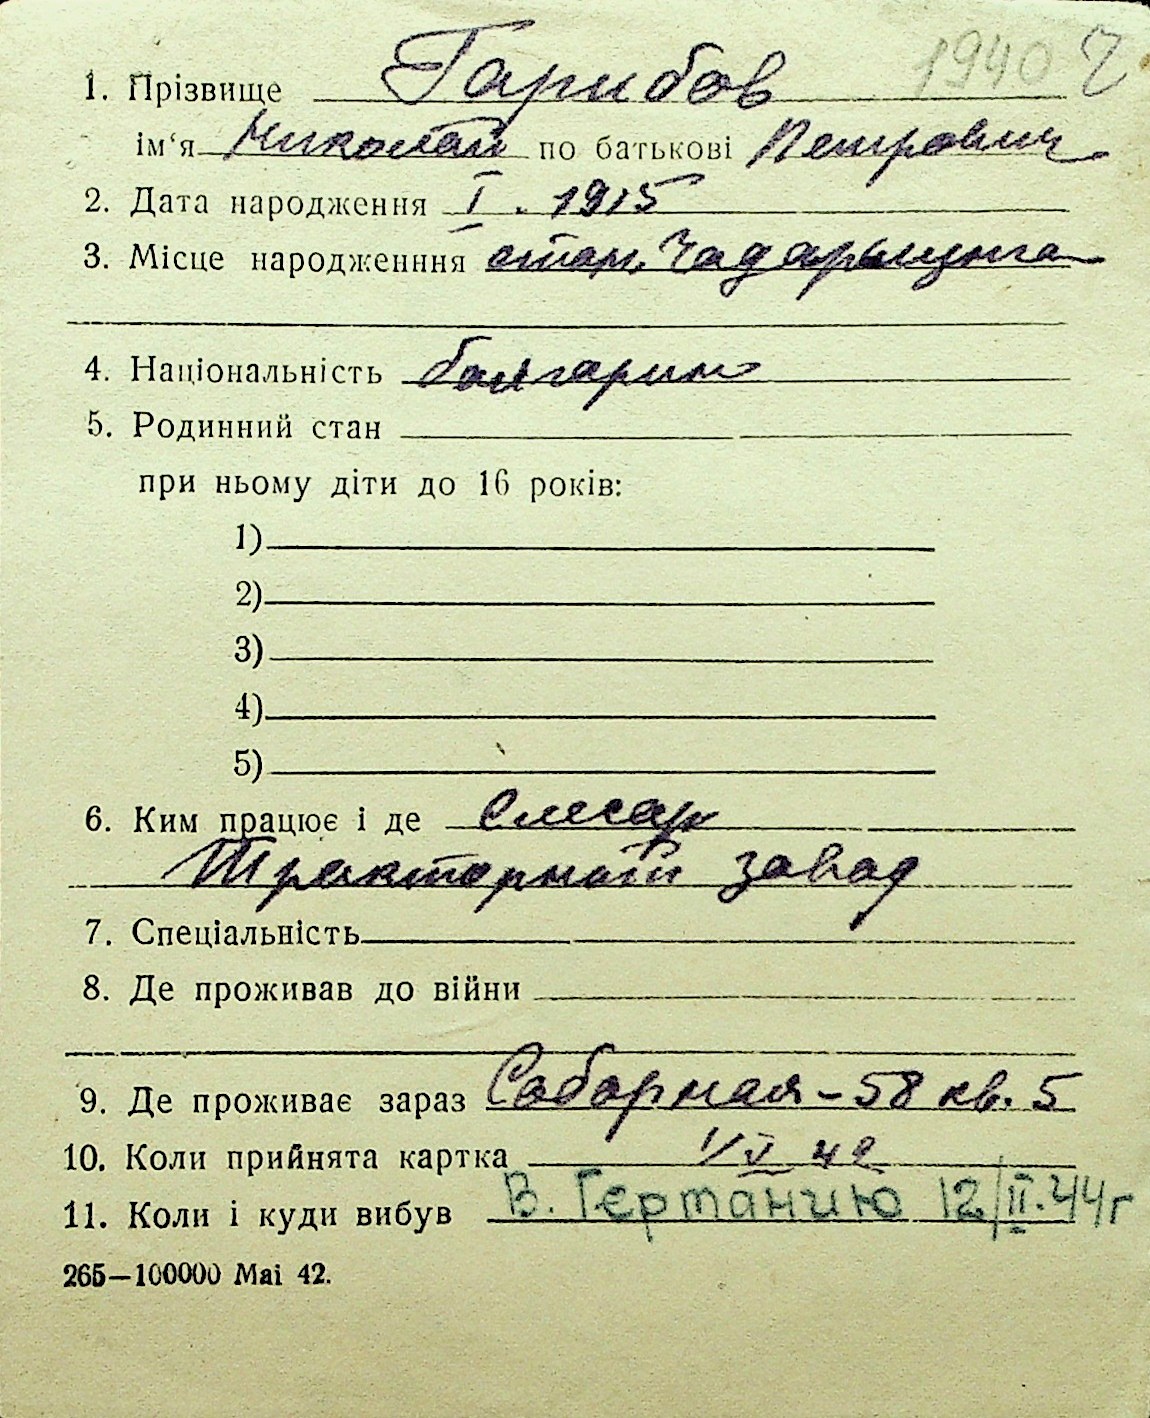 1940 г
1. Прізвище Гарибов
ім‘я Николай по батькові Петрович
2. Дата народження I. 1915
3. Місце народженння
4. Національність болгарин
5. Родинний стан
при ньому діти до 16 років:
1)
2)
3)
4)
5)
6. Ким працює і де Слесарь
Тракторный завод
7. Спеціальність
8. Де проживав до війни
9. Де проживає зараз Соборная – 58 кв. 5
10. Коли прийнята картка 1/V 42
11. Коли і куди вибув В. Германию 12/II.44г
265—100000 Mai 42.